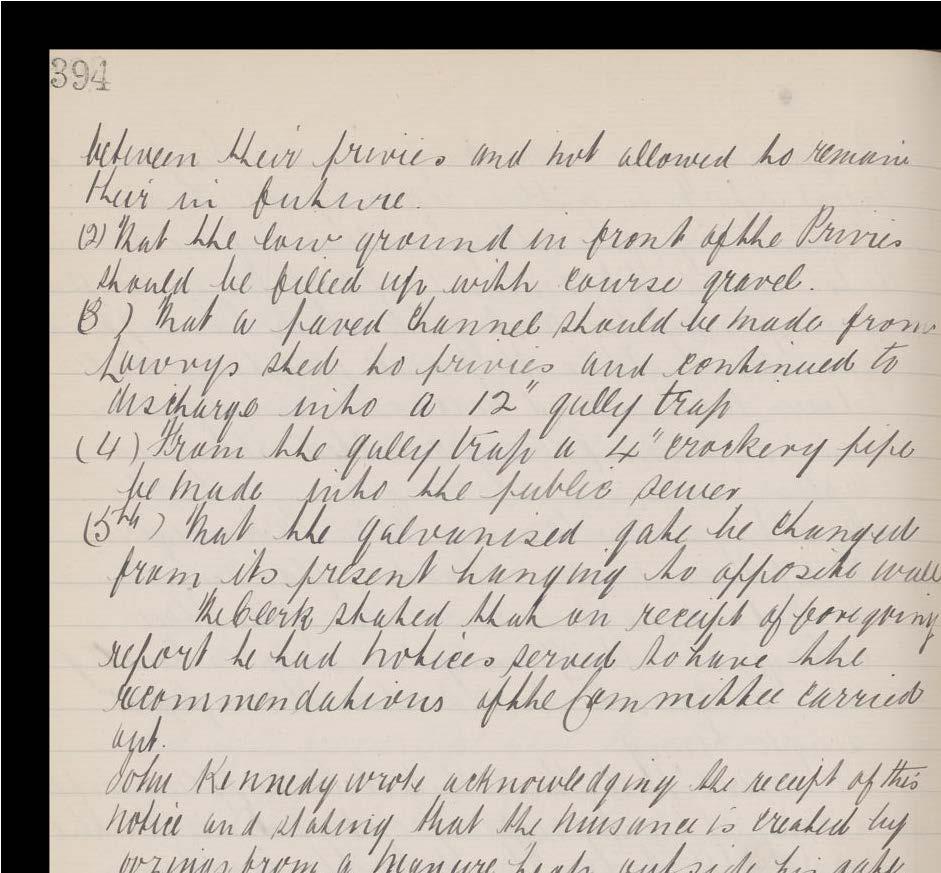 394
between their privies and not allowed to remain
their in future.
(2) That the low ground in front of the Privies
should be filled up with course gravel.
(3) That a paved Channel should be made from
Lowrys shed to privies and continued to
discharge into a 12" gully trap
(4) From the gully trap a 4" crockery pipe
be made into the public sewer
(5th) That the galvanised gate be changed
from its present hanging to opposite wall
The Clerk stated that on receipt of foregoing
report he had notices served to have the
recommendations of the Committee carried
out.
John Kennedy wrote acknowledging the receipt of this
notice and stating that the nuisance is created by
oozings from a manure heap outside his gate